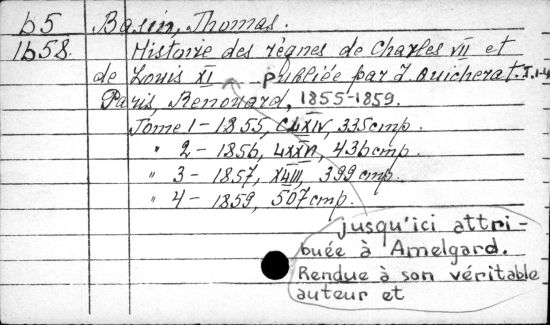 b5 Basin, Thomas.
1b58. Histoire des règnes de Charles VII et
de Louis XI publiée par J. Quicherat. T.1-4
Paris, Renouard, 1855-1859.
Tome 1 - 1855, CLXIV, 335cmp.
" 2 - 1856, LXXVI, 436cmp.
" 3 - 1857, XLIII, 399cmp.
" 4 - 1859, 507cmp.
jusqu'ici attri-
buée à Amelgard.
Rendue à son véritable
auteur et